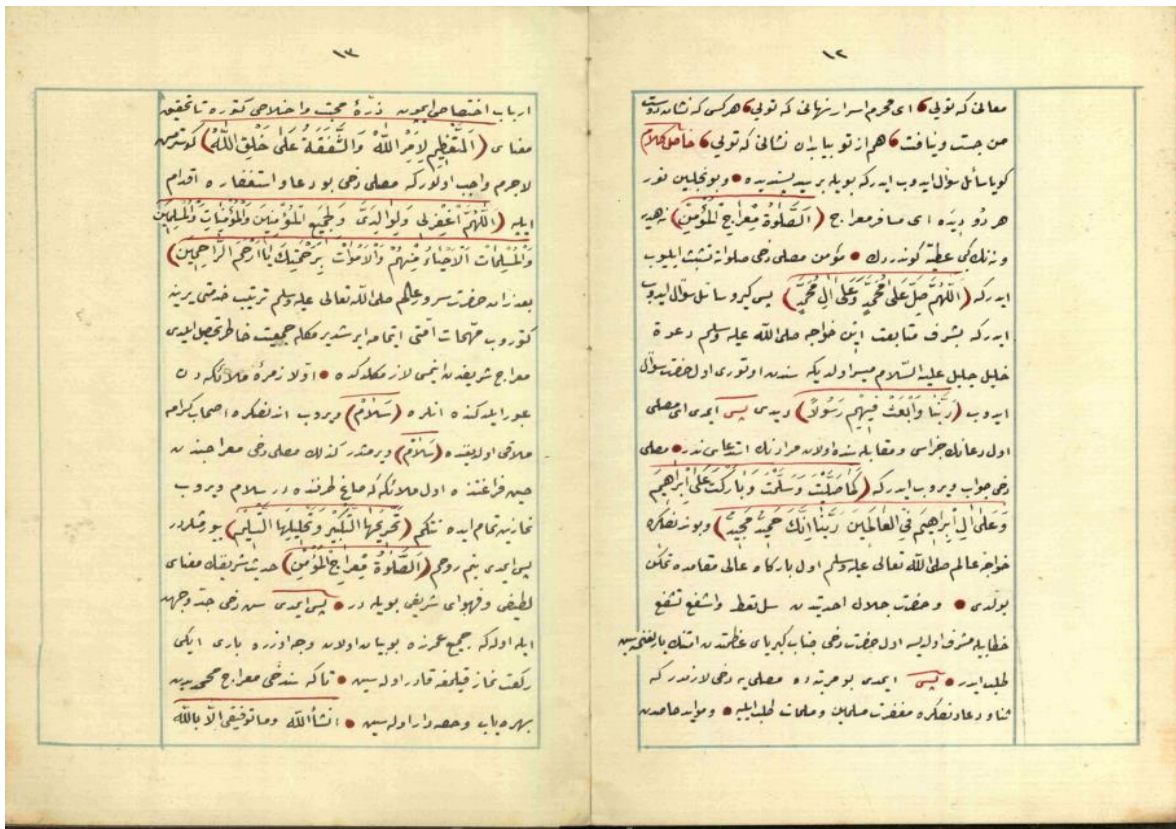 ١٢
معانی که تویی ای محرم اسرار نهانی که تویی هر کس که نشان دوست
من جست و نیافت هم از تو بیابد آن نشانی که تویی حاصل کلام
کویا سائل سؤال ایدوب ایدرکه بویله بر سید پسندیده وبو تجلین نور
هر دو دیده ای مسافر معراج (اَلصَّلٰوةُ مِعْرَاجُ الْمُؤْمِنْ) نه هدیه
ونه تك کبی عطیّه کوندردك مؤمن مصلی دخی صلواته تشبث ایلیوب
ایدرکه (اَللّٰهُمَّ صَلِّ عَلٰى مُحَمَّدٍ وَعَلٰى اٰلِ مُحَمَّدٍ) پس کیرو سائل سؤال ایدوب
ایدرکه بشرف متابعت این خواجه صلی الله علیه وسلم دعوة
خلیل جلیل علیه السّلام میسر اولدیکه سندن اوتوری اول حضرت سؤال
ایدوب (رَبَّنَا وَابْعَثْ فِيهِمْ رَسُولًا) دیدی پس ایمدی ای مصلی
اول دعانك جزاسی ومقابله سنده اولان مرادنك استدعاسی ندر مصلی
دخی جواب ویروب ایدرکه (كَمَا صَلَّيْتَ وَسَلَّمْتَ وَبَارَكْتَ عَلٰى اِبْرٰهِيمَ
وَعَلٰى اٰلِ اِبْرٰهِيمَ فِي الْعَالَمِينَ رَبَّنَا اِنَّكَ حَمِيدٌ مَجِيدٌ) وبوندنصکره
خواجه عالم صلی الله تعالی علیه وسلم اول بارکاه عالی مقامده تمکن
بولدی وحضرت جلال احدیتدن سل تعط واشفع تشفع
خطابیله مشرف اولدیسه اول حضرت دخی جناب کبریای عظمتدن امتنك یارلغنمه سین
طلب ایدر پس ایمدی بو مرتبه ده مصلی یه دخی لازمدر که
ثنا و دعادنصکره مغفرت مسلمین ومسلمات طلب ایلیه وموایدها مدن
١٣
ارباب اختصاص ایچون ذرّهٔ محبت واخلاص کتوره تا تحقیق
معنای (اَلتَّعْظِيمُ لِاَمْرِ اللّٰهْ وَالشَّفَقَةُ عَلٰى خَلْقِ اللّٰهْ) کوسترمش
لاجرم واجب اولور که مصلی دخی بو دعا واستغفاره اقدام
ایله (اَللّٰهُمَّ اغْفِرْلِي وَلِوَالِدَيَّ وَلِجَمِيعِ الْمُؤْمِنِينَ وَالْمُؤْمِنَاتِ وَالْمُسْلِمِينَ
وَالْمُسْلِمَاتِ اَلْاَحْيَاءِ مِنْهُمْ وَالْاَمْوَاتِ بِرَحْمَتِكَ يَا اَرْحَمَ الرَّاحِمِينَ)
بعد زان حضرت سرور عالم صلی الله تعالی علیه وسلم ترتیب خدمتی یرینه
کتوروب مهمات امّتی اتمامه ایرشدیرمکله جمعیت خاطر تحصیل ایلدی
معراج شریفدن اینمسی لازم کلدکده اولا زمرهٔ ملائکه دن
عبور ایلدکنده انلره (سَلَامْ) ویروب اندنصکره اصحاب کرامه
ملاقی اولدیغنده (سَلَامْ) ویرمشدر کذلك مصلی دخی معراجندن
حین فراغتنده اول ملائکه که صاغ طرفنده در سلام ویروب
نمازین تمام ایده نتکم (تَحْرِيمُهَا التَّكْبِيرُ وَتَحْلِيلُهَا التَّسْلِيمُ) بیورمشلردر
پس ایمدی بنم روحم (اَلصَّلٰوةُ مِعْرَاجُ الْمُؤْمِنْ) حدیث شریفنك معنای
لطیفی وفحوای شریفی بویله در پس ایمدی سن دخی جدّ وجهد
ایله اوله که جمیع عمرنده بو بیان اولان وجه اوزره باری ایکی
رکعت نماز قیلمغه قادر اوله سین تا که سن دخی معراج محمدیدن
بهره یاب وحصه دار اوله سین انشأ الله وما توفیقی الا بالله